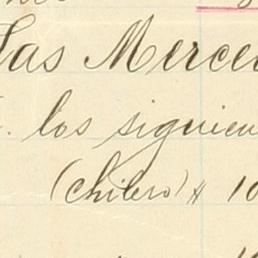 las Mercer
. los siguien
(Chilero) # 10